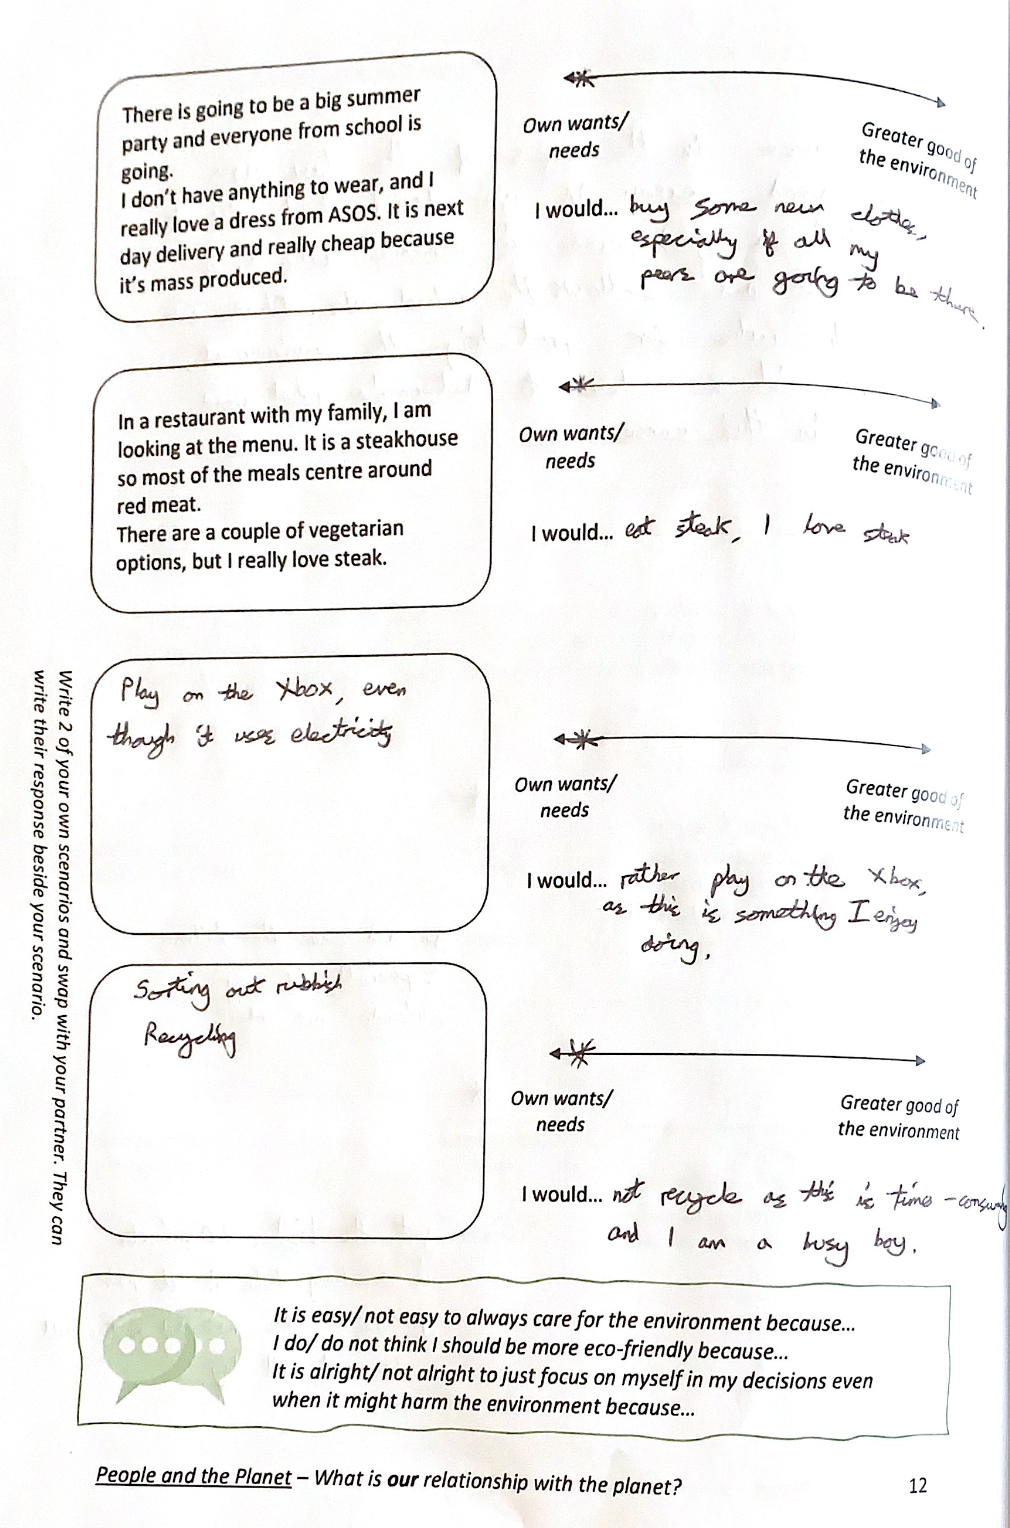 There is going to be a big summer
party and everyone from school is
going.
I don't have anything to wear, and I
really love a dress from ASOS. It is next
day delivery and really cheap because
it's mass produced.
Own wants/
needs
Greater good of
the environment
I would... buy some new clothes,
especially if all my
peers are going to be there.
In a restaurant with my family, I am
looking at the menu. It is a steakhouse
so most of the meals centre around
red meat.
There are a couple of vegetarian
options, but I really love steak.
Own wants/
needs
Greater good of
the environment
I would... eat steak, I love steak
Write 2 of your own scenarios and swap with your partner. They can
write their response beside your scenario.
Play on the Xbox, even
though it uses electricity
Own wants/
needs
Greater good of
the environment
I would... rather play on the Xbox,
as this is something I enjoy
doing.
Sorting out rubbish
Recycling
Own wants/
needs
Greater good of
the environment
I would... not recycle as this is time-consuming
and I am a busy boy.
It is easy/ not easy to always care for the environment because...
I do/ do not think I should be more eco-friendly because...
It is alright/ not alright to just focus on myself in my decisions even
when it might harm the environment because...
People and the Planet – What is our relationship with the planet?
12